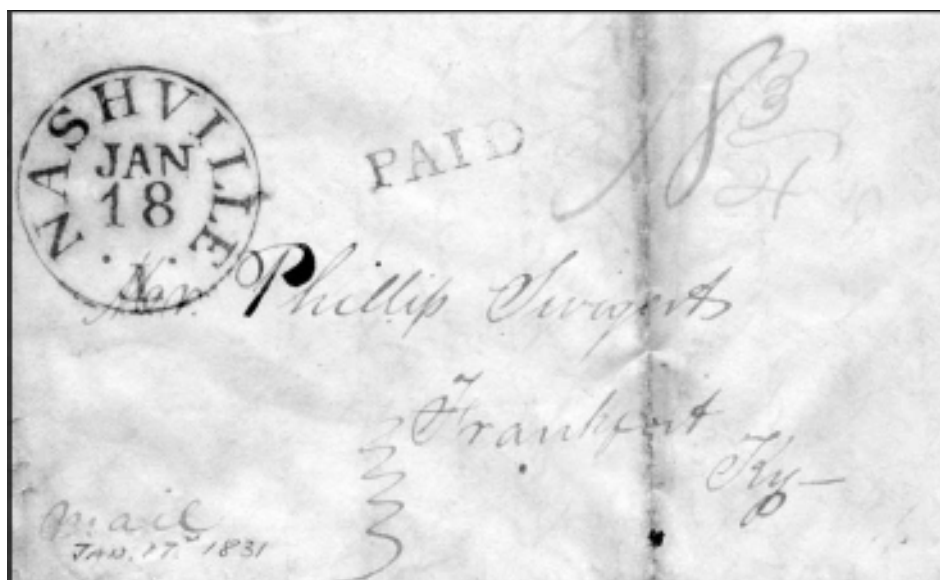 NASHVILLE
JAN
18
PAID
18 3/4
Hon. Phillip Swigert
Frankfort
Ky
mail
JAN. 17. 1831